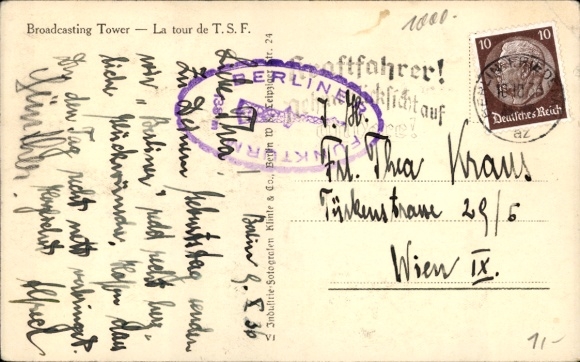 Broadcasting Tower — La tour de T. S. F.
1000.-
10 10
Deutsches Reich
Kraftfahrer!
Rücksicht auf
BERLINER
FUNKTURM
138 m
Berlin 9. X. 36
Liebe Thea!
Zu Deinem Geburtstag senden
wir Berliner, recht herz-
liche Glückwünsche. Hoffe dass
Du den Tag recht nett verbringst.
Herzlichst Alfred
Frl. Thea Kraus
Türkenstrasse 29/6
Wien IX.
Industrie-Fotografen Klinke & Co., Berlin W 8, Leipziger Str. 24
1,-